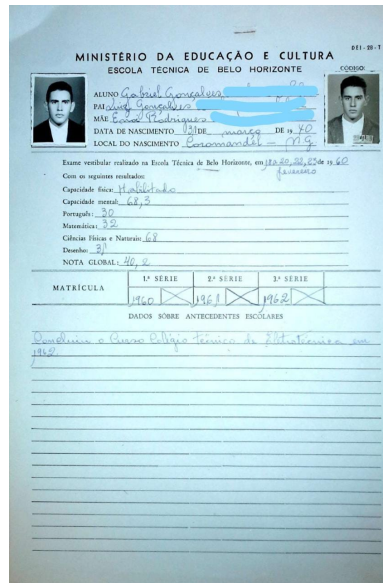 DEI-20-T
MINISTÉRIO DA EDUCAÇÃO E CULTURA
ESCOLA TÉCNICA DE BELO HORIZONTE
CÓDIGO:
ALUNO Gabriel Gonçalves
PAI Luiz Gonçalves
MÃE Rodrigues
DATA DE NASCIMENTO 31 DE março DE 1940
LOCAL DO NASCIMENTO Coromandel — MG
Exame vestibular realizado na Escola Técnica de Belo Horizonte, em 20, 22, 23 de 1960
fevereiro
Com os seguintes resultados:
Capacidade física: Habilitado
Capacidade mental: 68,3
Português: 30
Matemática: 32
Ciências Físicas e Naturais: 68
Desenho:
NOTA GLOBAL: 40,2
MATRÍCULA
1.ª SÉRIE 2.ª SÉRIE 3.ª SÉRIE
1960 1961 1962
DADOS SÔBRE ANTECEDENTES ESCOLARES
Concluiu o Curso Colégio Técnico de Eletrotécnica em
1962